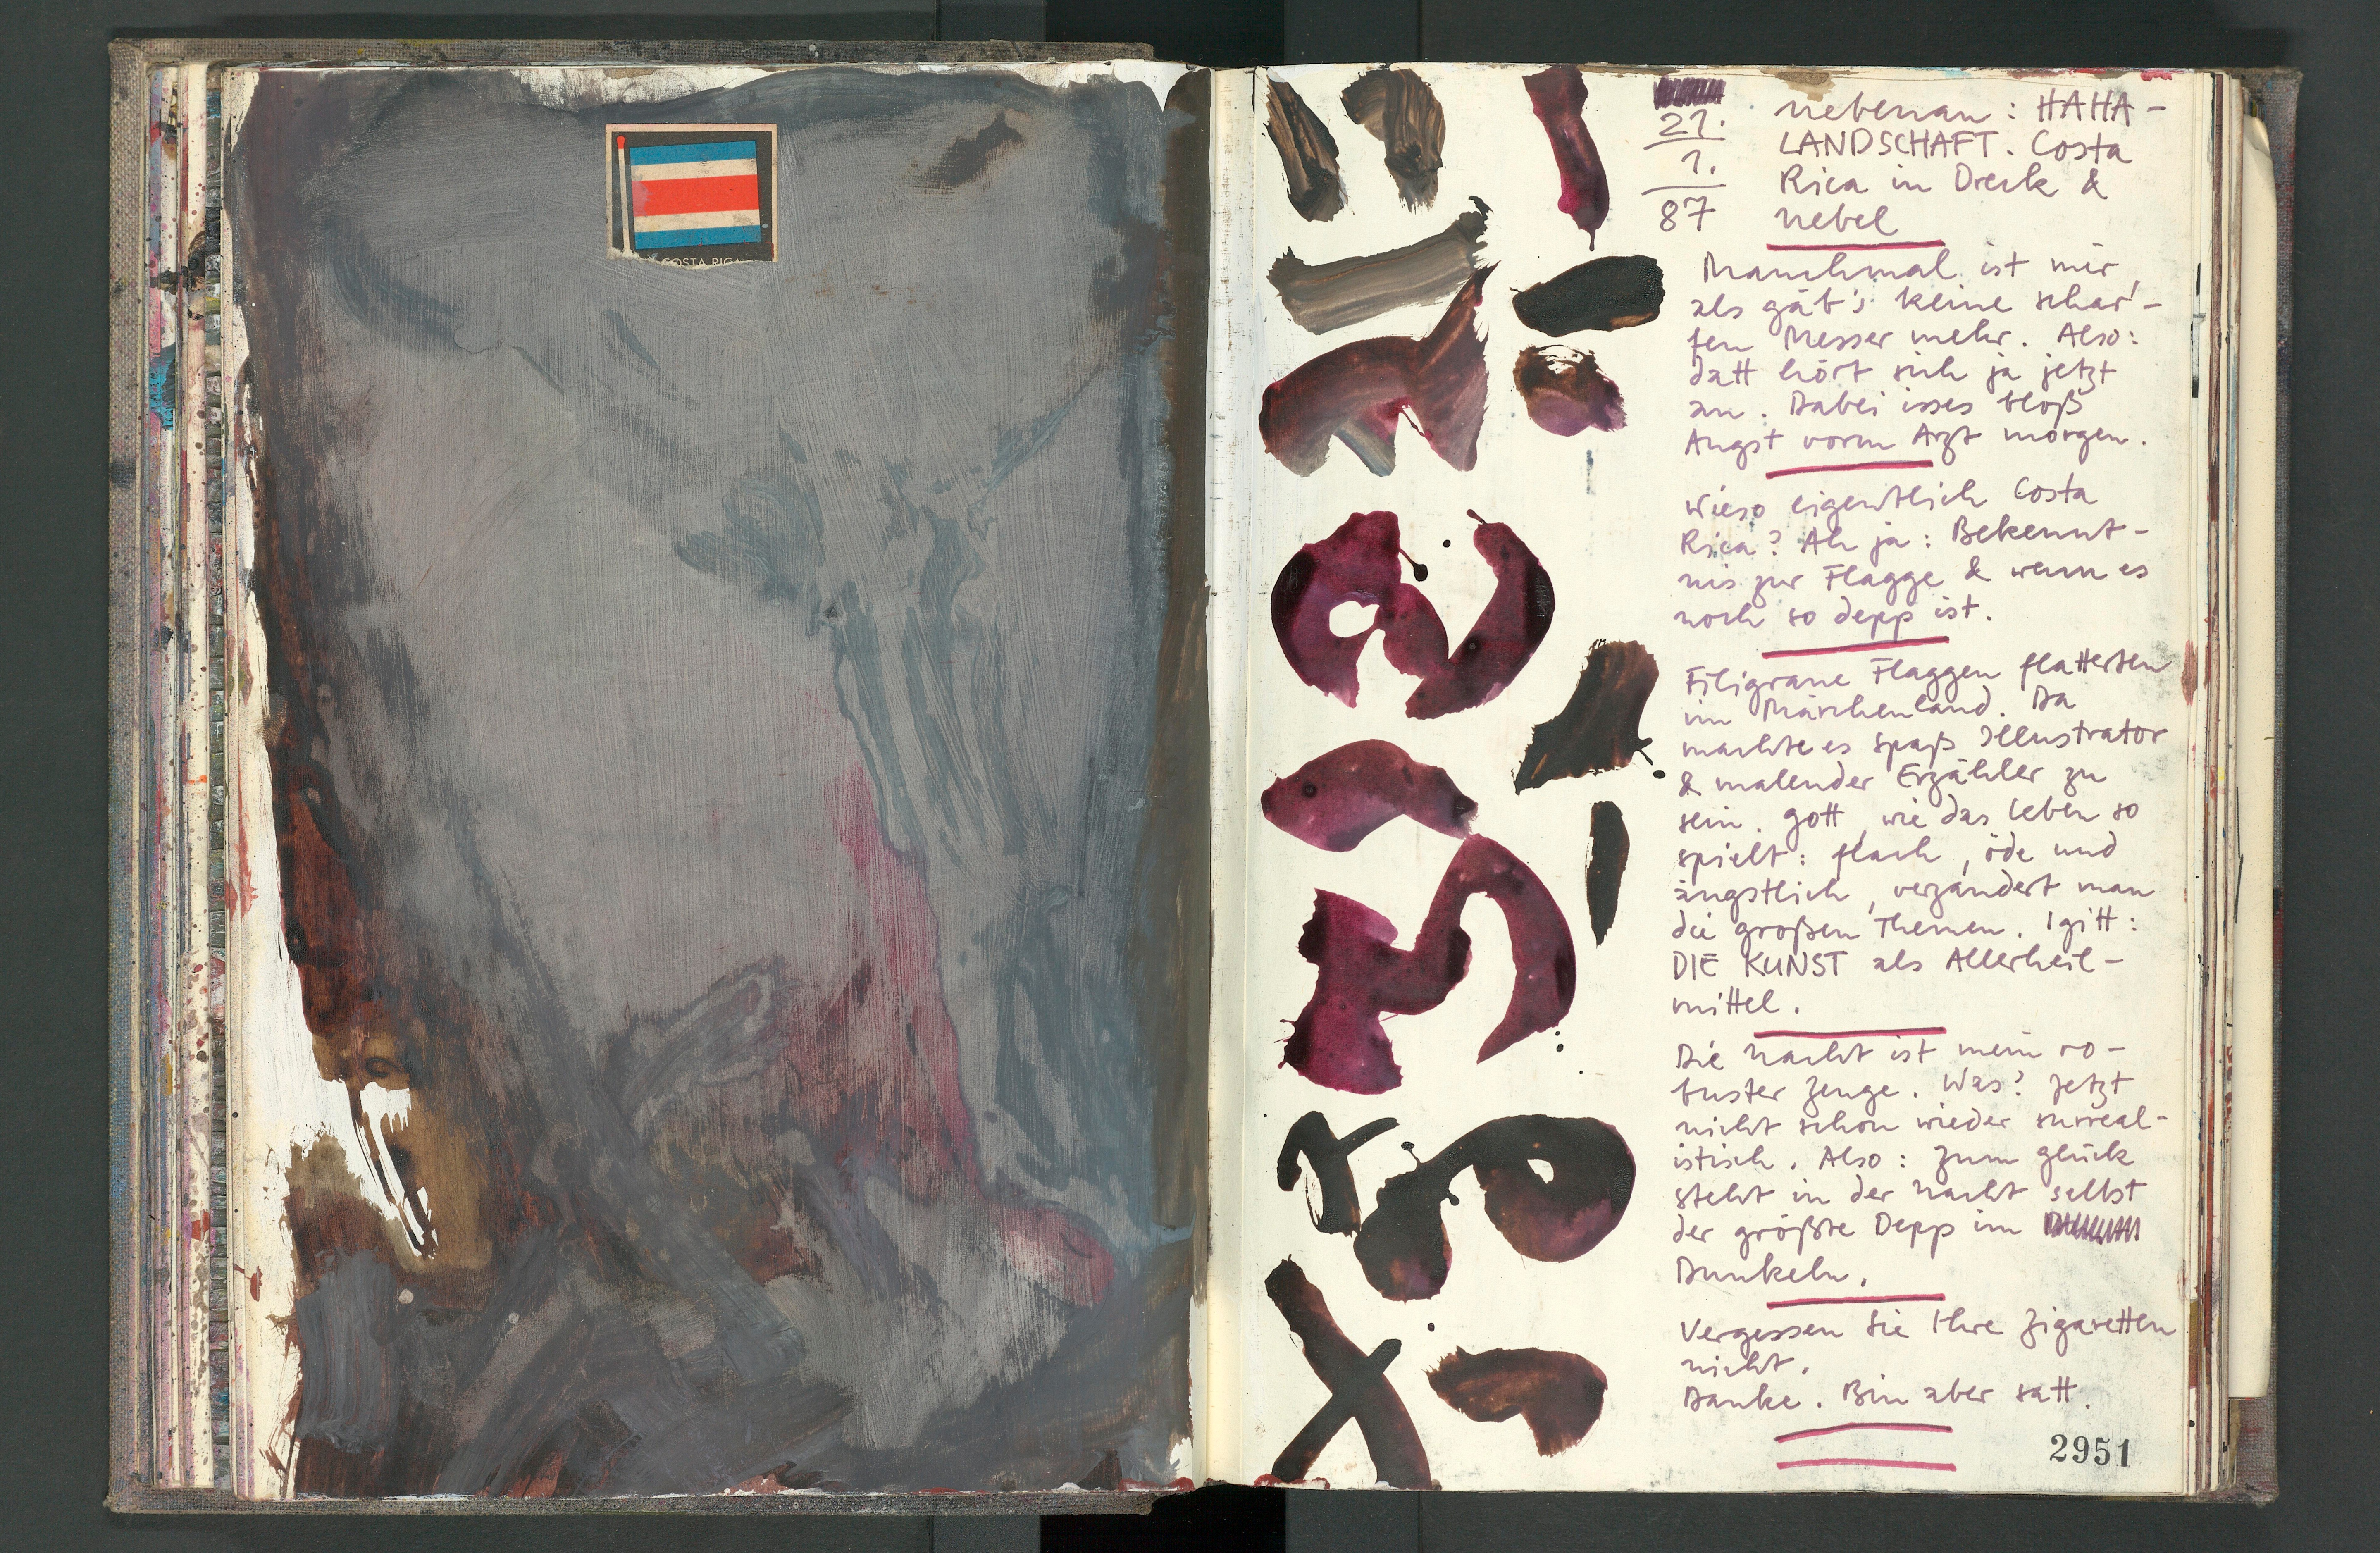 COSTA RICA
21.
1.
87
nebenan: HAHA-
LANDSCHAFT. Costa
Rica in Dreck &
Nebel
Manchmal ist mir,
als gäb's keine schar-
fen Messer mehr. Also:
datt hört sich ja jetzt
an. Dabei isses bloß
Angst vorm Arzt morgen.
Wieso eigentlich Costa
Rica? Ah ja: Bekennt-
nis zur Flagge & wenn es
noch so depp ist.
Filigrane Flaggen flatterten
im Märchenland. Da
machte es Spaß Illustrator
& malender Erzähler zu
sein. Gott, wie das Leben so
spielt: flach, öde und
ängstlich, verzändert man
die großen Themen. Igitt:
DIE KUNST als Allerheil-
mittel.
Die Nacht ist mein ro-
buster Zeuge. Was? Jetzt
nicht schon wieder surreal-
istisch. Also: Zum Glück
steht in der Nacht selbst
der größte Depp im
Dunkeln.
Vergessen Sie Ihre Zigaretten
nicht.
Danke. Bin aber satt.
2951